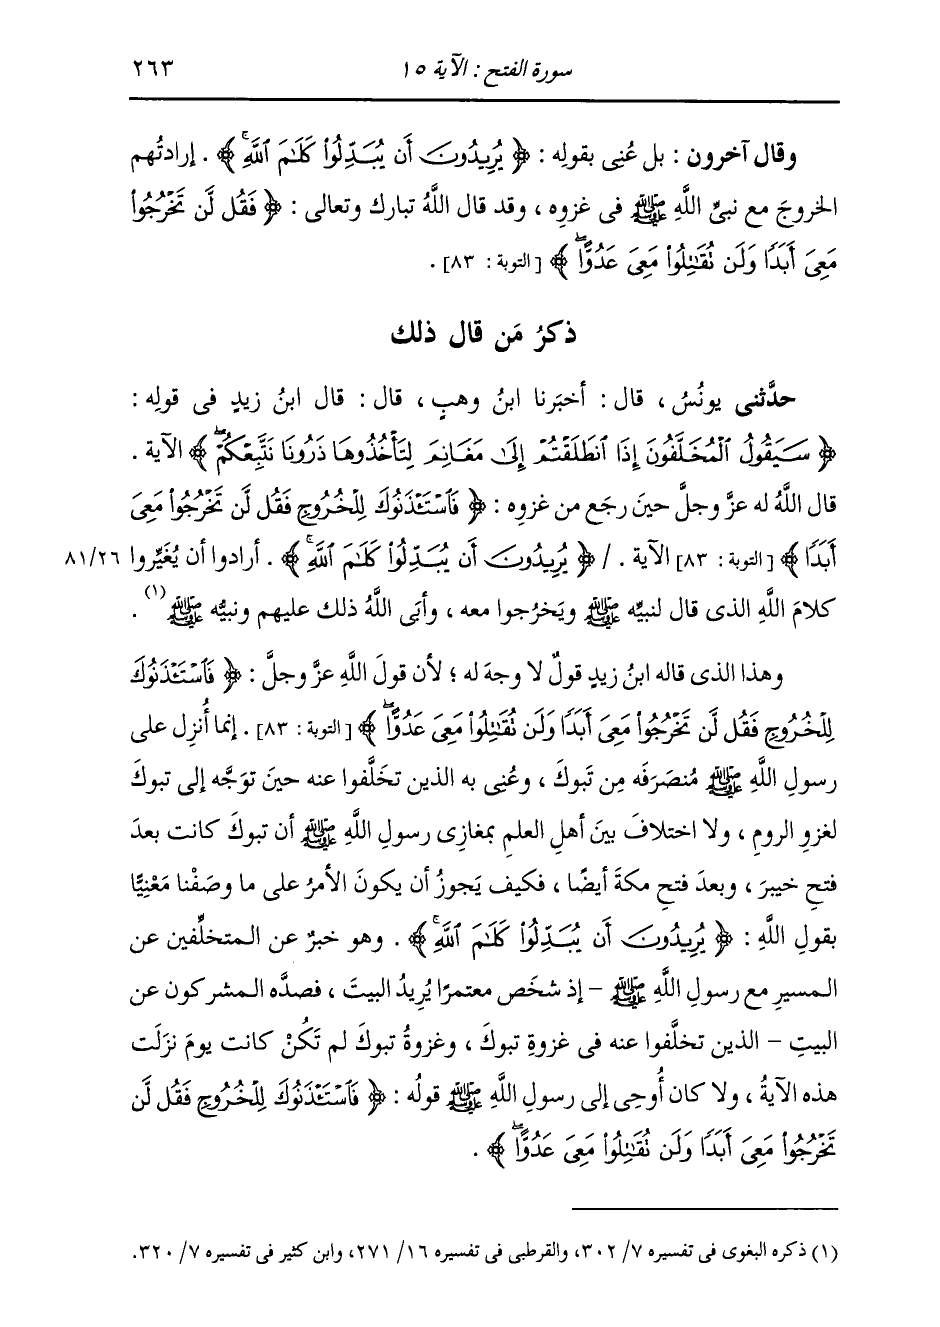 سورة الفتح : الآية ١٥ ٢٦٣
وقال آخرون : بل عُنِى بقولِه : ﴿ يُرِيدُونَ أَن يُبَدِّلُوا۟ كَلَٰمَ ٱللَّهِۚ ﴾ . إرادتُهم
الخروجَ مع نبىِّ اللَّهِ ﷺ فى غزوِه ، وقد قال اللَّهُ تبارك وتعالى : ﴿ فَقُل لَّن تَخْرُجُوا۟
مَعِىَ أَبَدًا وَلَن تُقَٰتِلُوا۟ مَعِىَ عَدُوًّاۖ ﴾ [ التوبة : ٨٣] .
ذكرُ مَن قال ذلك
حدَّثنى يونُسُ ، قال : أخبَرنا ابنُ وهبٍ ، قال : قال ابنُ زيدٍ فى قولِه :
﴿ سَيَقُولُ ٱلْمُخَلَّفُونَ إِذَا ٱنطَلَقْتُمْ إِلَىٰ مَغَانِمَ لِتَأْخُذُوهَا ذَرُونَا نَتَّبِعْكُمْۖ ﴾ الآية .
قال اللَّهُ له عزَّ وجلَّ حينَ رجَع من غزوِه : ﴿ فَٱسْتَـْٔذَنُوكَ لِلْخُرُوجِ فَقُل لَّن تَخْرُجُوا۟ مَعِىَ
أَبَدًا ﴾ [ التوبة : ٨٣] الآية . / ﴿ يُرِيدُونَ أَن يُبَدِّلُوا۟ كَلَٰمَ ٱللَّهِۚ ﴾ . أرادوا أن يُغَيِّروا ٨١/٢٦
كلامَ اللَّهِ الذى قال لنبيِّه ﷺ ويَخرُجوا معه ، وأبَى اللَّهُ ذلك عليهم ونبيُّه ﷺ (١) .
وهذا الذى قاله ابنُ زيدٍ قولٌ لا وجهَ له ؛ لأن قولَ اللَّهِ عزَّ وجلَّ : ﴿ فَٱسْتَـْٔذَنُوكَ
لِلْخُرُوجِ فَقُل لَّن تَخْرُجُوا۟ مَعِىَ أَبَدًا وَلَن تُقَٰتِلُوا۟ مَعِىَ عَدُوًّاۖ ﴾ [ التوبة : ٨٣] . إنما أُنزِل على
رسولِ اللَّهِ ﷺ مُنصَرَفَه مِن تَبوكَ ، وعُنِى به الذين تخَلَّفوا عنه حينَ توَجَّه إلى تبوكَ
لغزوِ الرومِ ، ولا اختلافَ بينَ أهلِ العلمِ بمغازِى رسولِ اللَّهِ ﷺ أن تبوكَ كانت بعدَ
فتحِ خيبرَ ، وبعدَ فتحِ مكةَ أيضًا ، فكيف يَجوزُ أن يكونَ الأمرُ على ما وصَفْنا مَعْنِيًّا
بقولِ اللَّهِ : ﴿ يُرِيدُونَ أَن يُبَدِّلُوا۟ كَلَٰمَ ٱللَّهِۚ ﴾ . وهو خبرٌ عن المتخلِّفين عن
المسيرِ مع رسولِ اللَّهِ ﷺ – إذ شخَص معتمرًا يُريدُ البيتَ ، فصدَّه المشركون عن
البيتِ – الذين تخلَّفوا عنه فى غزوةِ تبوكَ ، وغزوةُ تبوكَ لم تَكُنْ كانت يومَ نزَلت
هذه الآيةُ ، ولا كان أُوحِى إلى رسولِ اللَّهِ ﷺ قولُه : ﴿ فَٱسْتَـْٔذَنُوكَ لِلْخُرُوجِ فَقُل لَّن
تَخْرُجُوا۟ مَعِىَ أَبَدًا وَلَن تُقَٰتِلُوا۟ مَعِىَ عَدُوًّاۖ ﴾ .
(١) ذكره البغوى فى تفسيره ٧/ ٣٠٢، والقرطبى فى تفسيره ١٦/ ٢٧١، وابن كثير فى تفسيره ٧/ ٣٢٠.